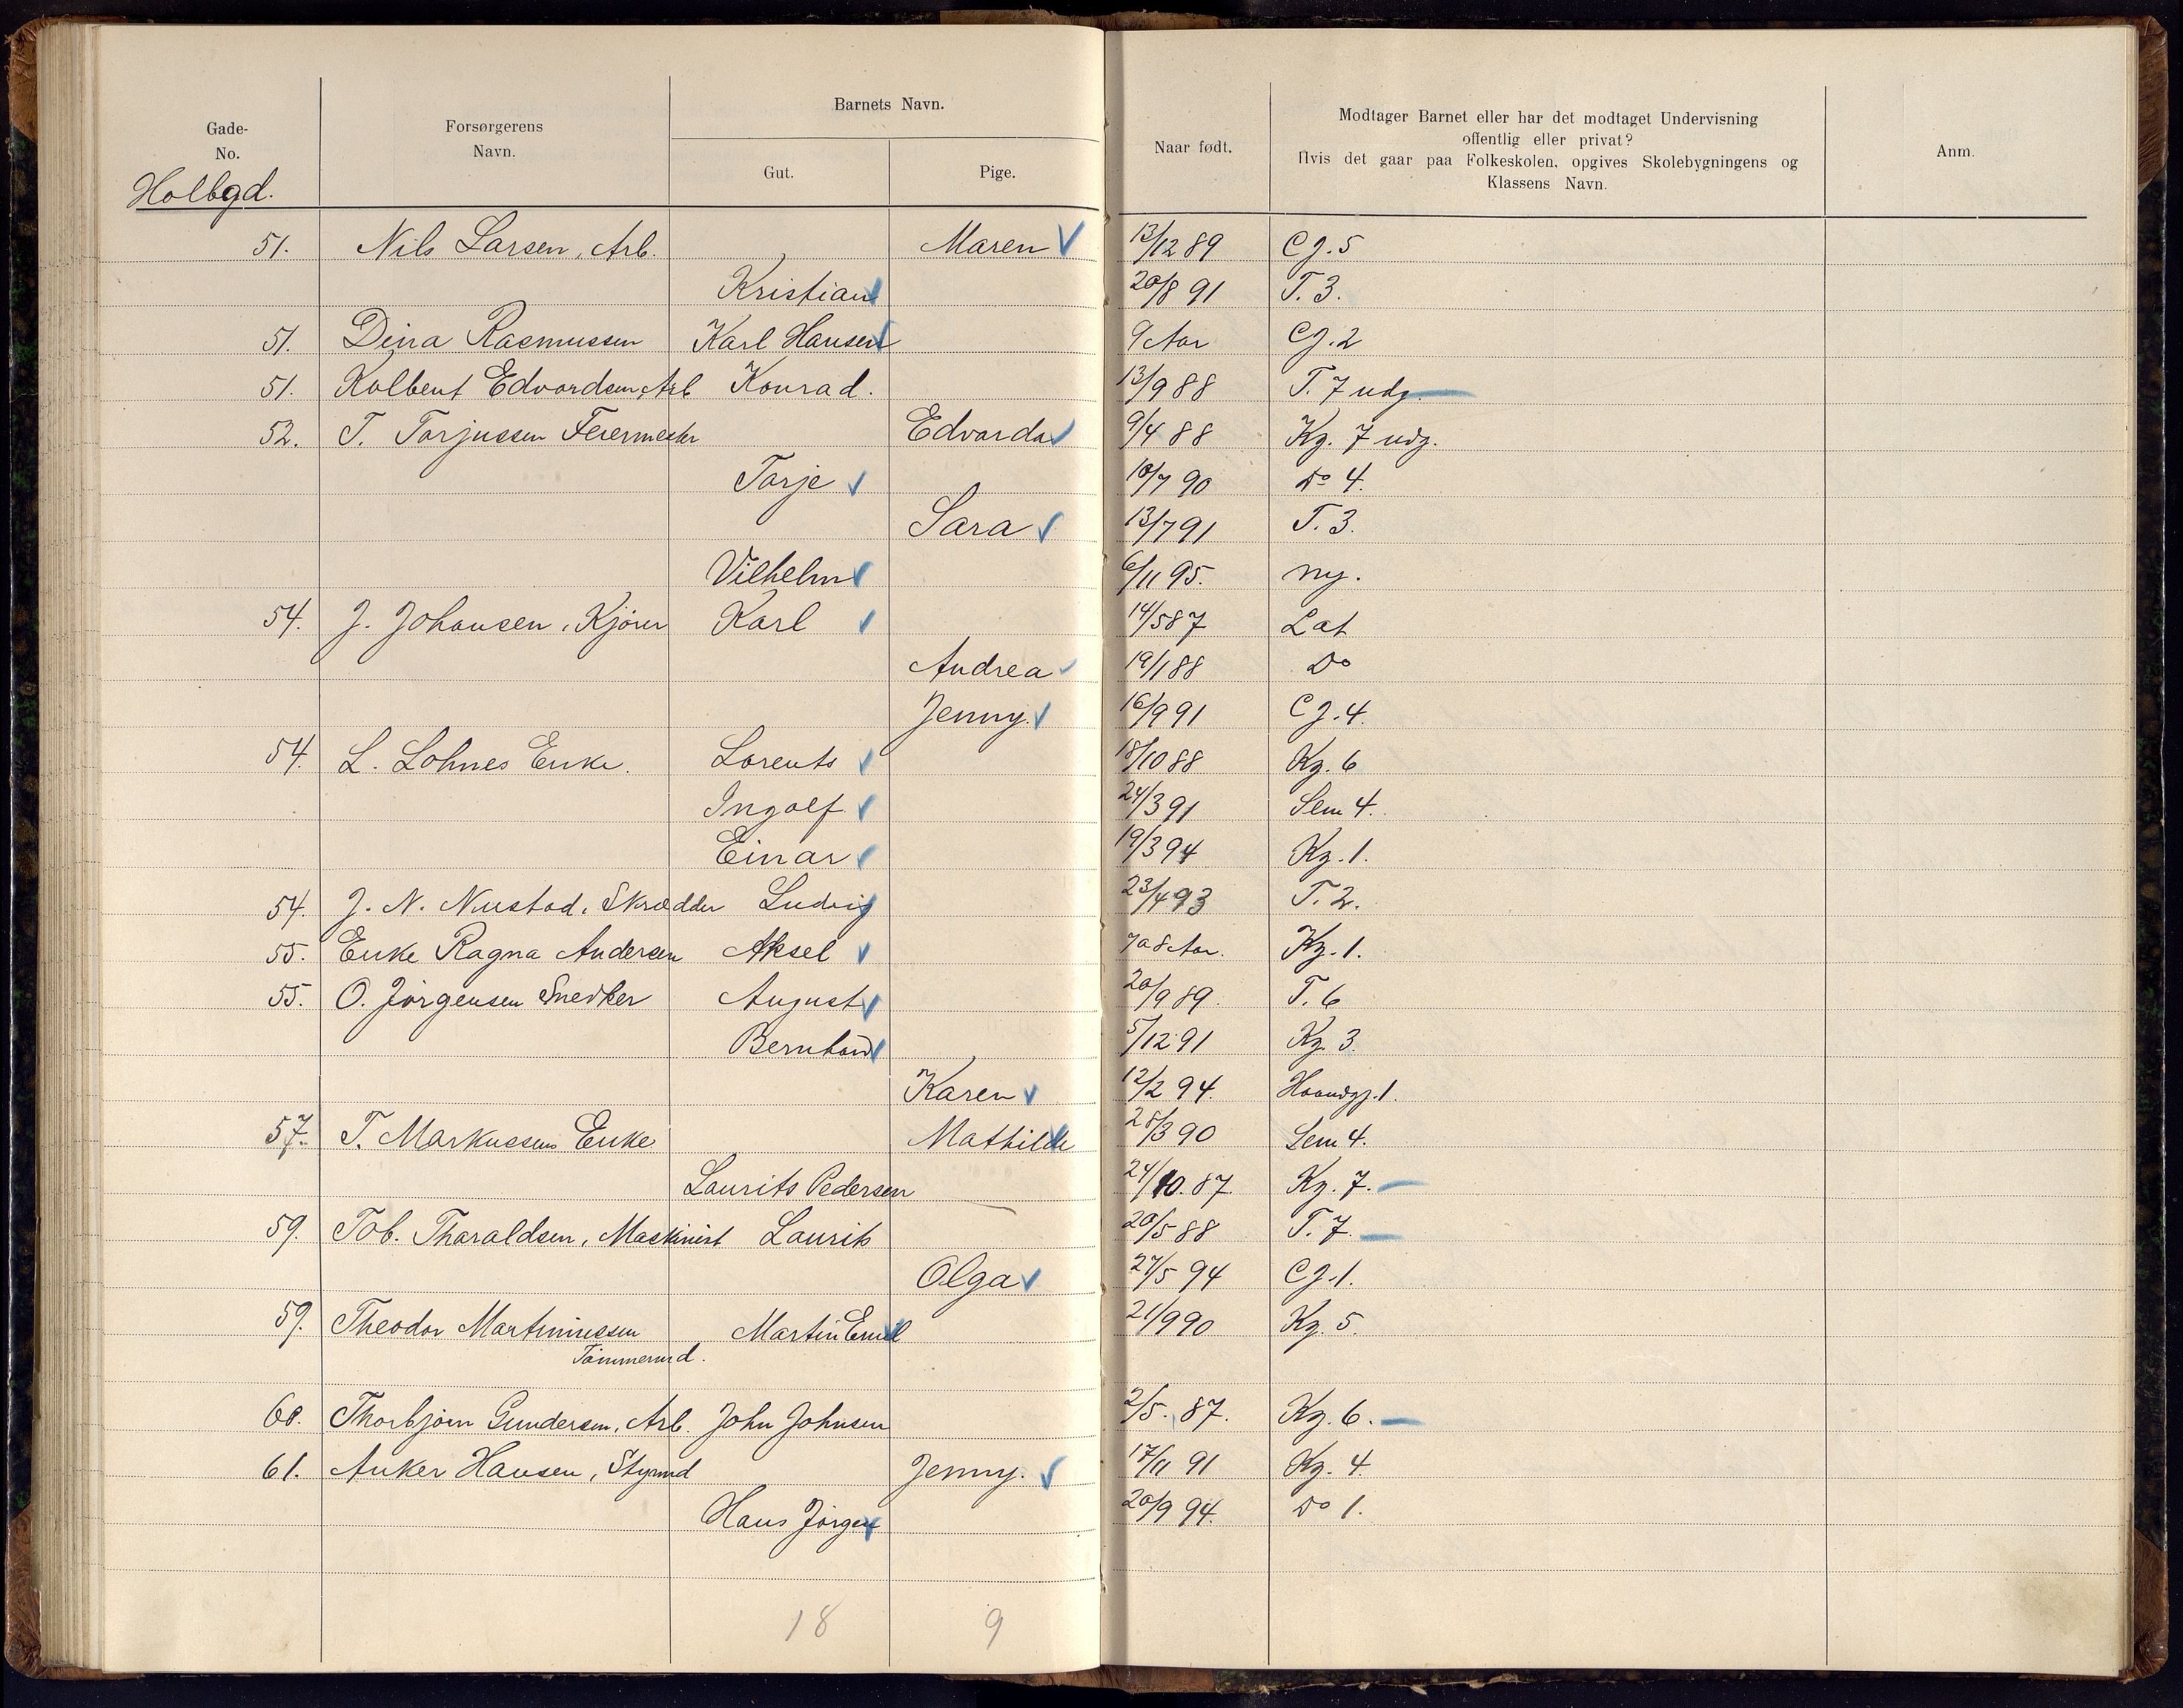 Gade-
No.
Forsørgerens
Navn.
Barnets Navn.
Gut.
Pige.
Naar født.
Modtager Barnet eller har det modtaget Undervisning
offentlig eller privat?
Hvis det gaar paa Folkeskolen, opgives Skolebygningens og
Klassens Navn.
Anm.
Holbgd.
51. Nils Larsen, Arb. Maren 13/12 89 CJ. 5
Kristian 20/8 91 T. 3.
51. Dina Rasmussen Karl Hansen 9 Aar CJ. 2
51. Kolbent Edvardsen, Arb Konrad. 13/9 88 T. 7 udg.
52. T. Torjussen Feiermester Edvarda 9/4 88 Kg. 7 udg.
Torje 10/7 90 Do 4.
Sara 13/7 91 T. 3.
Vilhelm 6/11 95. ny.
54. J. Johansen, Kjører Karl 14/5 87 Lat
Andrea 19/1 88 Do
Jenny. 16/9 91 CJ. 4.
54. L. Lohnes Enke. Lorents 18/10 88 Kg. 6
Ingolf 24/3 91 Sem 4.
Einar 19/3 94 Kg. 1.
54. J. N. Nustad, Skrædder Ludvig 23/4 93 T. 2.
55. Enke Ragna Andersen Aksel 7 a 8 Aar. Kg. 1.
55. O. Jörgensen Snedker August 20/9 89. T. 6
Bernhard 5/12 91 Kg. 3.
Karen 12/2 94. Haandgj. 1.
57. T. Markussens Enke Mathilde 28/3 90 Sem 4.
Laurits Pedersen 24/10. 87. Kg. 7.
59. Tob. Tharaldsen, Maskinist Laurits 20/5 88 T. 7.
Olga 27/5 94 CJ. 1.
59. Theodor Martiniussen Martin Emil 21/9 90 Kg. 5.
Tömmermd.
60. Thorbjörn Gundersen, Arb. John Johnsen 2/5. 87. Kg. 6.
61. Anker Hansen, Styrmd Jenny. 17/11 91 Kg. 4.
Hans Jörgen 20/9 94. Do 1.
18 9